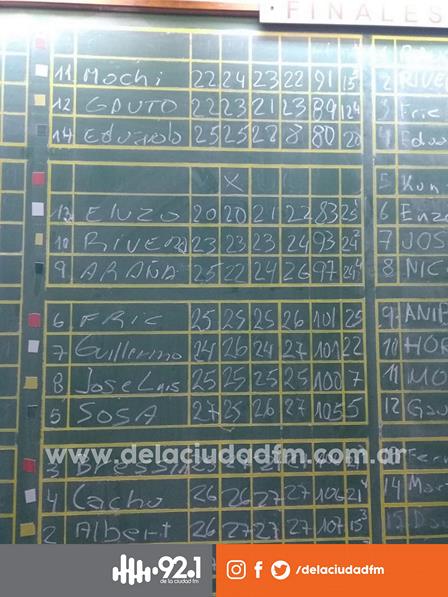 FINALES
11 Mochi 22 24 23 22 91
12 GAUTO 22 23 21 23 89 124
14 Eduardo 25 25 22 8 80 20
X
13 ENZO 20 20 21 22 83 25
10 RIVERA 23 23 23 24 93 24²
9 ARAÑA 25 22 24 26 97 24⁴
6 FRIC 25 25 25 26 101 25
7 Guillermo 24 26 24 27 101 22
8 Jose Luis 25 25 25 25 100 7
5 SOSA 27 25 26 27 105 5
3 BRESSIN
4 Cacho 26 26 27 27 106 21⁴
2 Albert 26 27 27 27 107 15³
2 RIVE
3 Fric
4 Eduo
5 Kun
6 Enz
7 JOS
8 NIC
9 ANIB
10 HOR
11 MO
12 Gau
Fer
14 Mar
www.delaciudadfm.com.ar
92.1
de la ciudad fm
/delaciudadfm